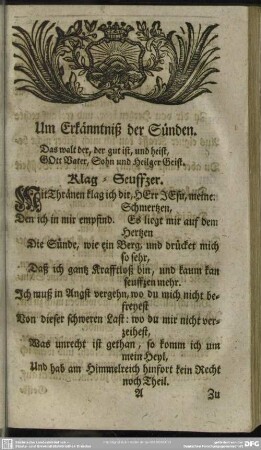 Um Erkänntniß der Sünden.
Das walt der, der gut ist, und heist,
GOtt Vater, Sohn und Heilger Geist.
Klag-Seuffzer.
Mit Thränen klag ich dir, HErr JEsu, meine
Schmertzen,
Den ich in mir empfind. Es liegt mir auf dem
Hertzen
Die Sünde, wie ein Berg, und drücket mich
so sehr,
Daß ich gantz Krafftloß bin, und kaum kan
seuffzen mehr.
Ich muß in Angst vergehn, wo du mich nicht be-
freyest
Von dieser schweren Last: wo du mir nicht ver-
zeihest,
Was unrecht ist gethan, so komm ich um
mein Heyl,
Und hab am Himmelreich hinfort kein Recht
noch Theil.
A Zu
DFG